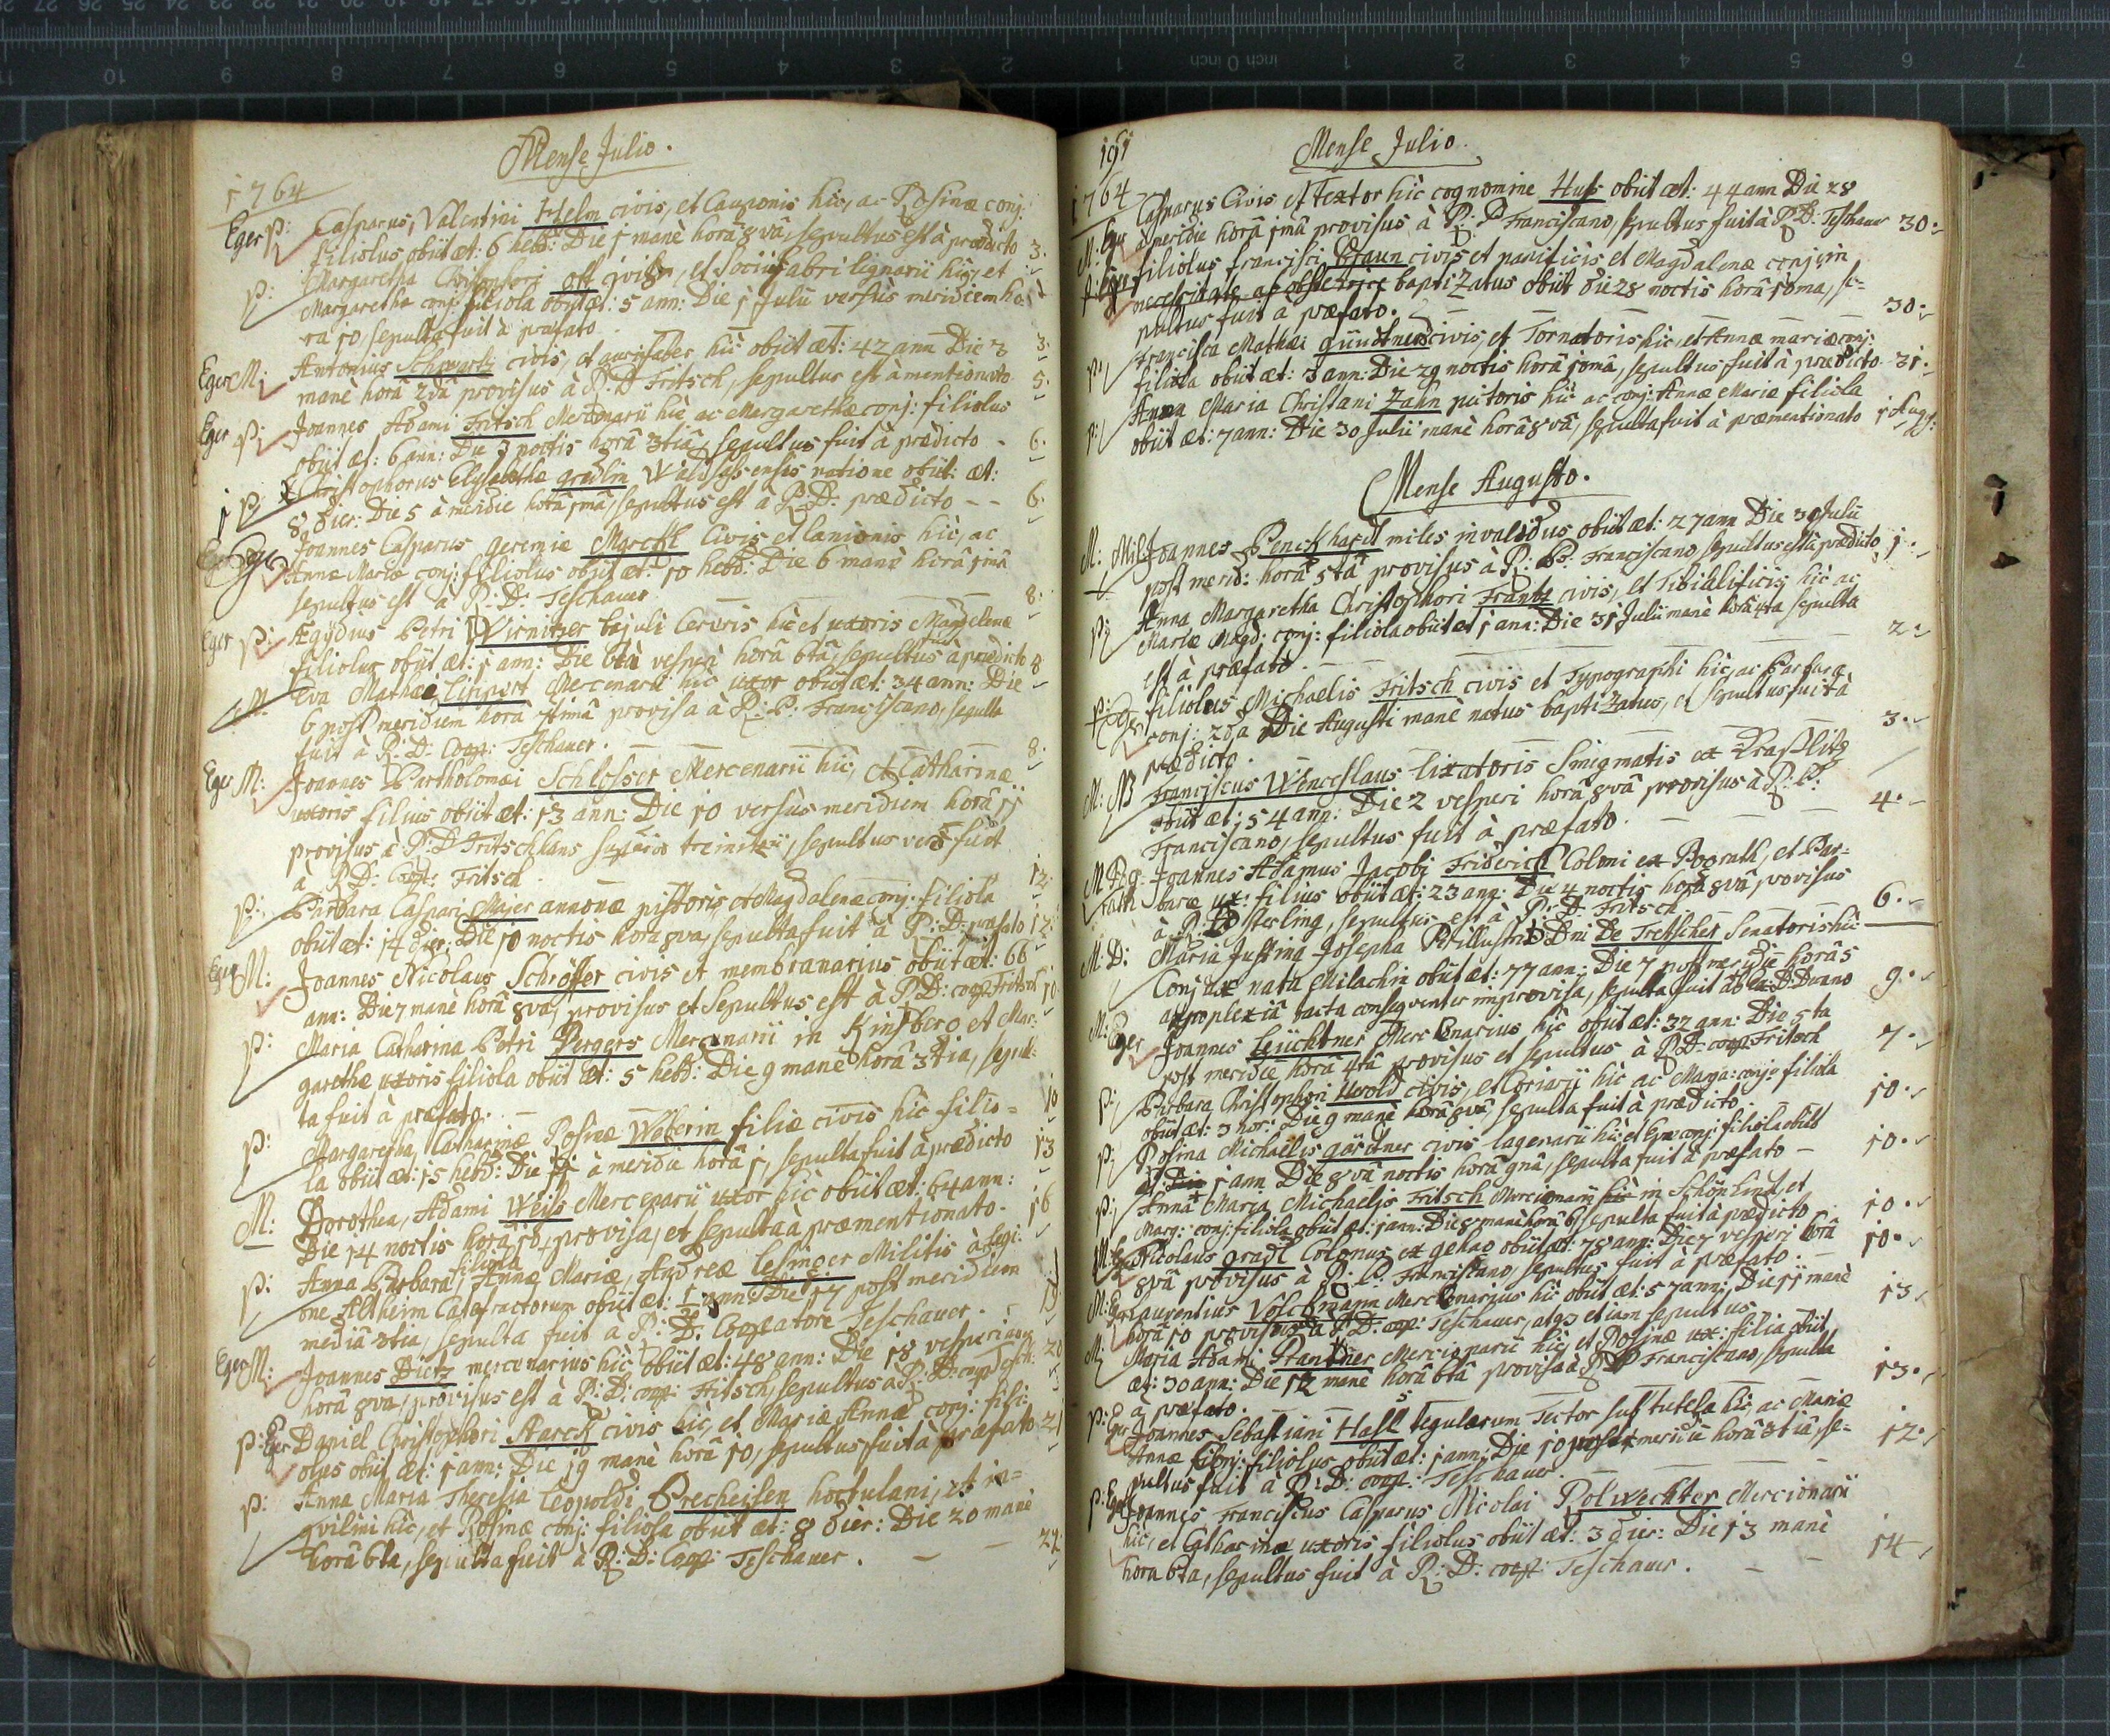 Mense Julio.
1764
Eger P: Casparus, Valentini Helm civis, et Cauponis hic, ac Rosinæ conj:
filiolus obiit æt: 6 hebd: Die 1 manè horâ 8vâ, sepultus est à prædicto 3.
P: Margaretha Christophori Ott civis, et Socii fabri lignarii hic, et
Margaretha conj: filiola obiit æt: 5 ann: Die 1 Julii versùs meridiem ho
ra 10, sepulta fuit à præfato 3.
Eger M: Antonius Schwartz civis, et aurifaber hic obiit æt: 42 ann Die 3
manè horâ 2dâ provisus à R: D Fritsch, sepultus est à mentionato 5.
Eger P: Joannes Adami Fritsch Mercenarii hic ac Margarethæ conj: filiolus
obiit æt: 6 ann: Die 3 noctis horâ 3tiâ, sepultus fuit à prædicto - 6.
P: Christophorus Elysabethæ gredlin ratione obiit: æt:
8 dier: Die 5 à meridie horâ 1mâ, sepultus est à R: D: prædicto - - 6.
Eger Joannes Casparus Geremiæ Marckl Civis et lanionis hic, ac
Annæ Mariæ conj: filiolus obiit æt: 10 hebd: Die 6 manè horâ 1mâ
sepultus est à R: D: Teschauer 8.
Eger P: Ægydius Petri Wirnitzer bajuli Cerevis: hic et uxoris Magdalenæ
filiolus obiit æt: 1 ann: Die 6tâ vesperi horâ 6tâ, sepultus à prædicto 8
M: Eva Mathæi Lippert Mercenarii hic uxor obiit æt: 34 ann: Die
6 post meridiem horâ provisa à R: P: Franciscano, sepulta
fuit à R: D: Coop: Teschauer. 8.
Eger M: Joannes Bartholomæi Schlosser Mercenarii hic, et Catharinæ
uxoris filius obiit æt: 13 ann: Die 10 versùs meridiem horâ 11
provisus à R: D Fritsch sepultus verò fuit
à R D: Coop: Fritsch. 12.
P: Barbara Caspari Majer annonæ pistoris, et Magdalenæ conj: filiola
obiit æt: 14 dier: Die 10 noctis horâ 8va, sepulta fuit à R: D: præfato 12.
Eger M: Joannes Nicolaus Schröffer civis et membranarius obiit æt: 66
ann: Die 7 manè horâ 8va, provisus et Sepultus est à R D: coop: Fritsch 10.
P: Maria Catharina Petri Pergers Mercenarii in Kinsberg et Mar-
garethæ uxoris filiola obiit æt: 5 hebd: Die 9 manè horâ 3tia, sepul-
ta fuit à præfato. 10
P: Margaretha, Catharinæ Rosinæ Weberin filiæ civis hic filio-
la obiit æt: 15 hebd: Die 11 à meridie horâ 1, sepulta fuit à prædicto 13
M: Dorothea, Adami Weiss Mercenarii uxor hic obiit æt: 64 ann:
Die 14 noctis horâ 10, provisa, et sepulta à præmentionato. 16
P: Anna Barbara filiola Annæ Mariæ, Andreæ Lesinger Militis à legi-
one Altheim Catafractorum obiit æt: ½ ann: Die 17 post meridiem
mediâ 3tia, sepulta fuit à R: D: Cooperatore Teschauer. 19
Eger M: Joannes Dietz mercenarius hic obiit æt: 48 ann: Die 18 vesperi
horâ 8va, provisus est à R: D: coop: Fritsch, sepultus à R: D: coop: Tesch: 20
P: Eger Daniel Christophori Starck civis hic, et Mariæ Annæ conj: fili-
olus obiit æt: 1 ann: Die 19 manè horâ 10, sepultus fuit à præfato 21
P: Anna Maria Theresia Leopoldi Precheisen hortulani, et in-
qvilini hic, et Rosinæ conj: filiola obiit æt: 8 dier: Die 20 manè
horâ 6ta, sepulta fuit à R: D: Coop: Teschauer. - - 22.
191
Mense Julio.
1764
M: Eger Casparus Civis et textor hic cognomine Huss obiit æt: 44 ann Die 28
à meridie horâ 1mâ provisus à R: P Franciscano, sepultus fuit à R: D: Teschauer 30.
P: Eger filiolus francisci Braun civis et panificis et Magdalenæ conj: in
necessitate ab obstetrice baptizatus obiit die 28 noctis horâ 10ma, se-
pultus fuit à præfato. 30.
P: Francisca Mathæi güntner civis, et Tornatoris hic, et Annæ mariæ conj:
filiola obiit æt: 3 ann: Die 29 noctis horâ 10mâ, sepultus fuit à prædicto. 31.
P: Anna Maria Christiani Zahn pictoris hic ac conj: Annæ Mariæ filiola
obiit æt: 7 ann: Die 30 Julii manè horâ 8vâ, sepulta fuit à præmentionato 1 Aug:
Mense Augusto.
M: Mil: Joannes Penckhardt miles invalidus obiit æt: 27 ann Die 30 Julii
post merid: horâ 5tâ provisus à R: P: Franciscano sepultus est à prædicto 1.
P: Anna Margaretha Christophori Frantz civis, et Tibialificis hic ac
Mariæ Magd: conj: filiola obiit æt 1 ann: Die 31 Julii manè horâ 4ta sepulta
est à præfato. 2.
P: Eger filiolus Michaelis Fritsch civis et Typographi hic, ac Barbaræ
conj: 2da Die Augusti manè natus baptizatus, et sepultus fuit à
prædicto. 3.
M: NB Franciscus Wenceslaus lixatoris Smigmatis ex Grasslitz
obiit æt: 54 ann: Die 2 vesperi horâ 8vâ provisus à R: P:
Franciscano, sepultus fuit à præfato. 4.
M Pog- Joannes Adamus Jacobi Friderich Coloni ex Pograth, et Bar-
rath baræ ux: filius obiit æt: 23 ann: Die 4 noctis horâ 8vâ provisus
à R: D Sterling, sepultus est à R: D: Fritsch. 6.
M: D: Maria Justina Josepha Perillustris Dni De Tretscher Senatoris hic
Conjux nata Milachin obiit æt: 77 ann: Die 7 post meridie horâ 5
apoplexiâ tacta conseqventer improvisa, sepulta fuit 9.
M: Eger Joannes Leüchtner Mercenarius hic obiit æt: 32 ann: Die 5ta
post meridie horâ 4tâ provisus et sepultus à R D: coop: Fritsch 7.
P: Barbara Christophori Uwold civis, et Coriarii hic ac Marga: conj: filiola
obiit æt: 3 hor: Die 9 manè horâ 8vâ, sepulta fuit à prædicto. 10.
P: Rosina Michaelis gärtner civis lagenarii hic, et Evæ conj: filiola obiit
æt: 1 ann Die 8vâ noctis horâ 9nâ, sepulta fuit à præfato - 10.
P: Anna Maria Michaelis Fritsch Mercionarii in Schönlind, et
Marg: conj: filiola obiit æt: 1 ann: Die 8 manè horâ 6 sepulta fuit à prædicto 10.
M: Eger Nicolaus gradl Colonus ex gehag obiit æt: 78 ann: Die 7 vesperi horâ
8vâ provisus à R: P: Franciscano, sepultus fuit à præfato. - 10.
M: Eger Laurentius Volckmann Mercenarius hic obiit æt: 57 ann: Die 11 manè
horâ 10 provisus à R: D: coop: Teschauer, atq3 etiam sepultus 13.
M: Maria Adami Prantner Mercionarii hic, et Rosinæ ux: filia obiit
æt: 30 ann: Die 12 manè horâ 6tâ provisa à R P Franciscano, sepulta
à præfato. 13.
P: Eger Joannes Sebastiani Hass Tegularum Tector sub tutela hic, ac Mariæ
Annæ conj: filiolus obiit æt: 1 ann: Die 10 post meridie horâ 3tiâ, se-
pultus fuit à R: D: coop: Teschauer. 12.
P: Eger Joannes Franciscus Casparus Nicolai Rolwechter Mercionarii
hic, et Catharinæ uxoris filiolus obiit æt: 3 dier: Die 13 manè
hora 6ta, sepultus fuit à R: D: coop: Teschauer. - - 14.